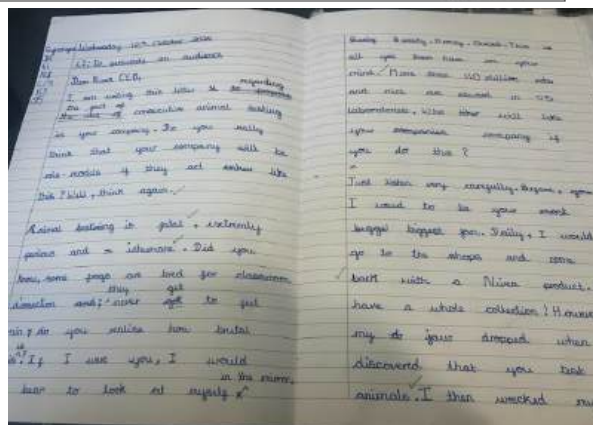 Wednesday 10th October
LI: To persuade an audience
Dear Nivea CEO,
I am writing this letter regarding
the part of
consecutive animal testing
in your company. Do you really
think that your company will be
role-models if they act like
this? Well, think again.
Animal testing is fatal, extremely
and inhumane. Did you
know, some frogs are bred for classroom
dissection and they never get to feel
do you realise how brutal
is. If I were you, I would
bear to look at myself in the mirror.
Beauty. Money. This is
all you have in your
mind. More than 110 million
and mice are in US
laboratories. Who will like
your company if
you do this?
Just listen very carefully. Before,
I used to be your most
biggest fan. Daily, I would
go to the shops and come
back with a Nivea product.
have a whole collection! However
my jaw dropped when
discovered that you test
animals. I then